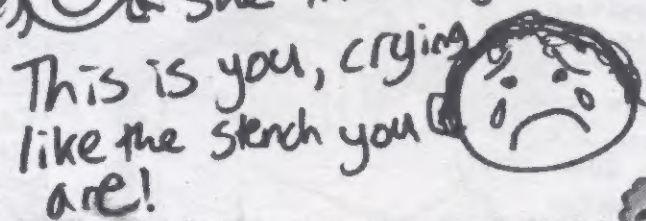 & she
This is you, crying
like the stench you
are!